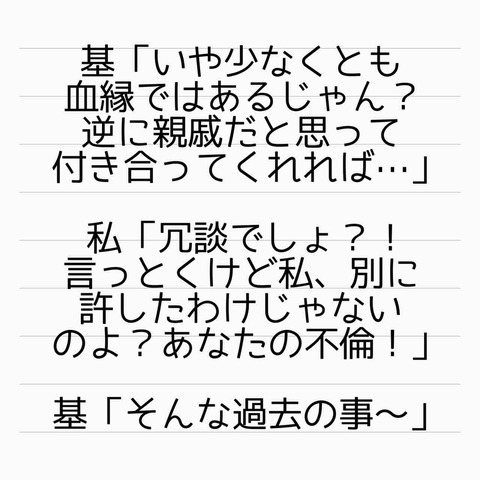 基「いや少なくとも
血縁ではあるじゃん？
逆に親戚だと思って
付き合ってくれれば…」
私「冗談でしょ？！
言っとくけど私、別に
許したわけじゃない
のよ？あなたの不倫！」
基「そんな過去の事〜」